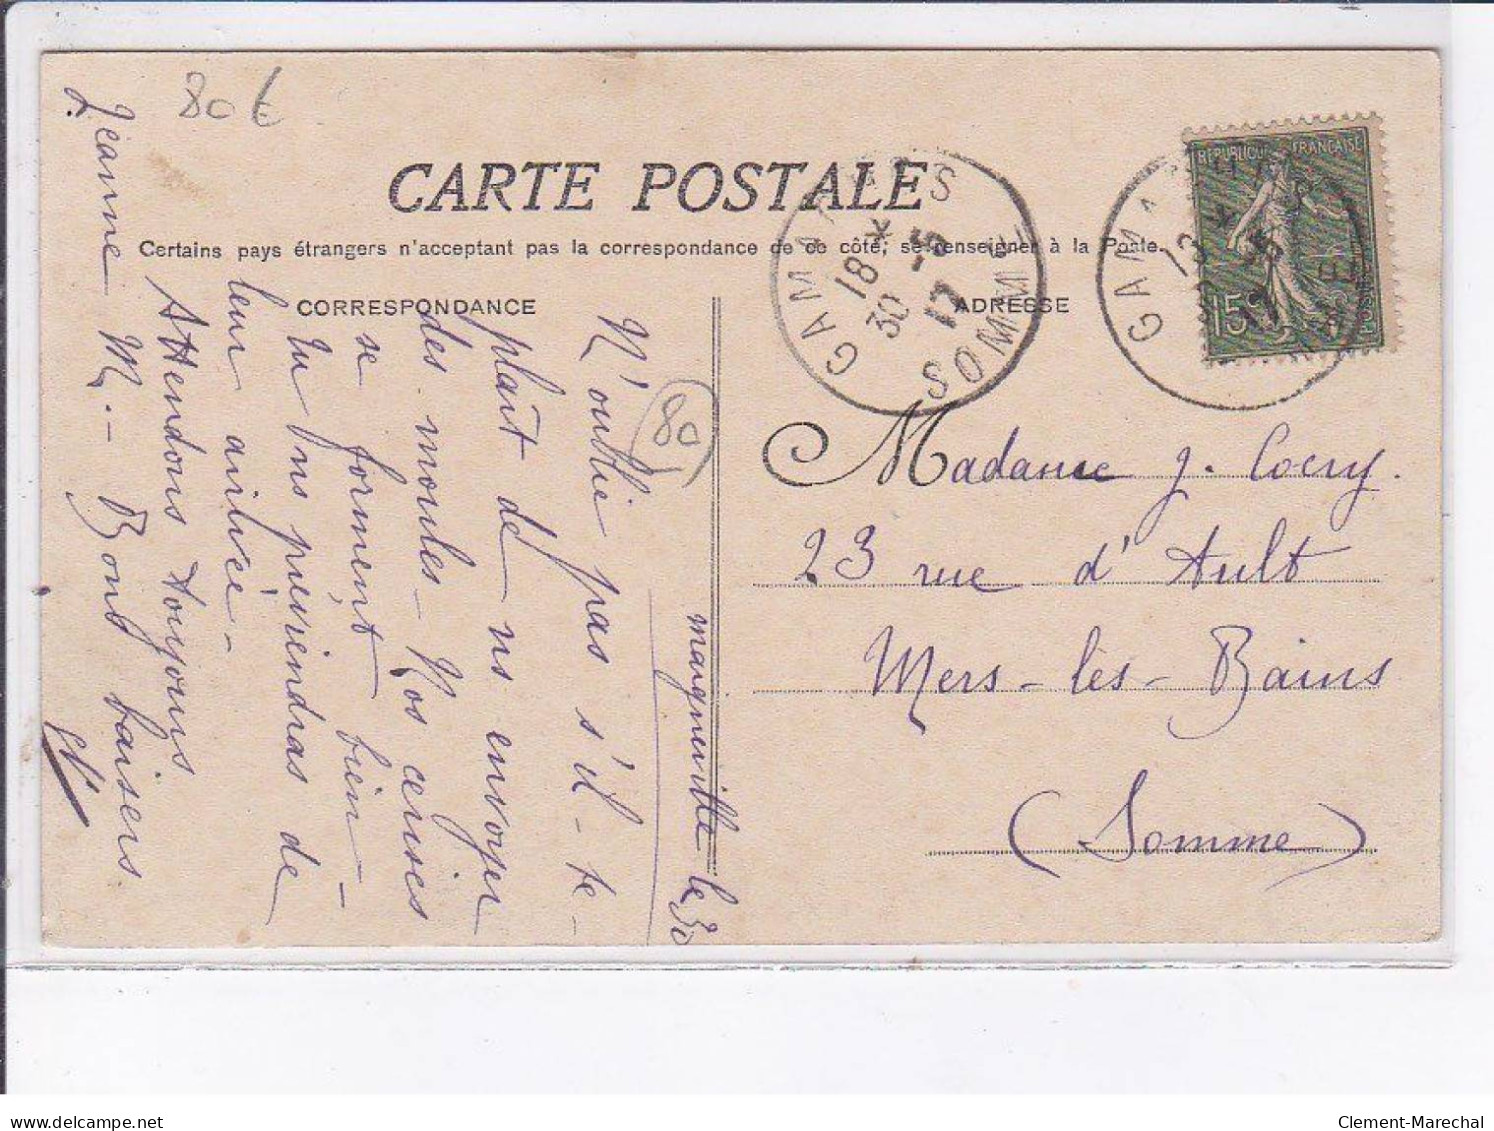 80€
CARTE POSTALE
Certains pays étrangers n'acceptant pas la correspondance de ce côté, se renseigner à la Poste.
CORRESPONDANCE
ADRESSE
Maigneville le 30
N'oublie pas s'il-te-
plaît de ns envoyer
des moules - Nos cerises
se forment bien -
Tu ns préviendras de
leur arrivée -
Attendons toujours
Jeanne M. - Bons baisers
80
GAMACHES
18 *
30 -5
17
SOMME
REPUBLIQUE FRANÇAISE
15c
POSTES
GAMACHES
13 *
-5
17
SOMME
Madame J. Coery.
23 rue d'Ault
Mers-lès-Bains
(Somme)
delcampe.net
Clement-Marechal